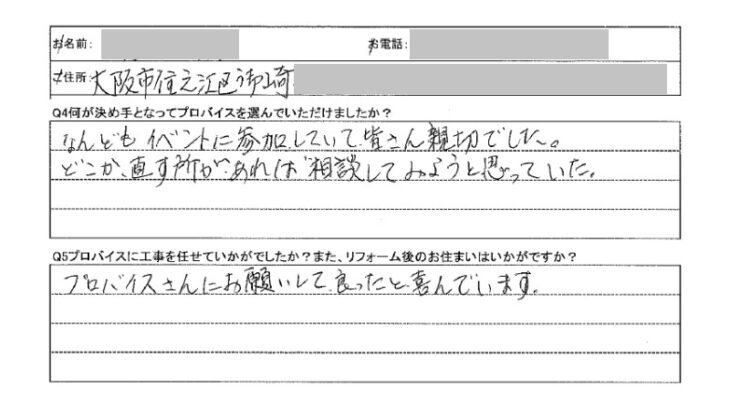 お名前: お電話:
ご住所: 大阪市住之江区御崎
Q4何が決め手となってプロバイスを選んでいただけましたか？
なんどもイベントに参加していて皆さん親切でした。
どこか、直す所があれば相談してみようと思っていた。
Q5プロバイスに工事を任せていかがでしたか？また、リフォーム後のお住まいはいかがですか？
プロバイスさんにお願いして良ったと喜んでいます。